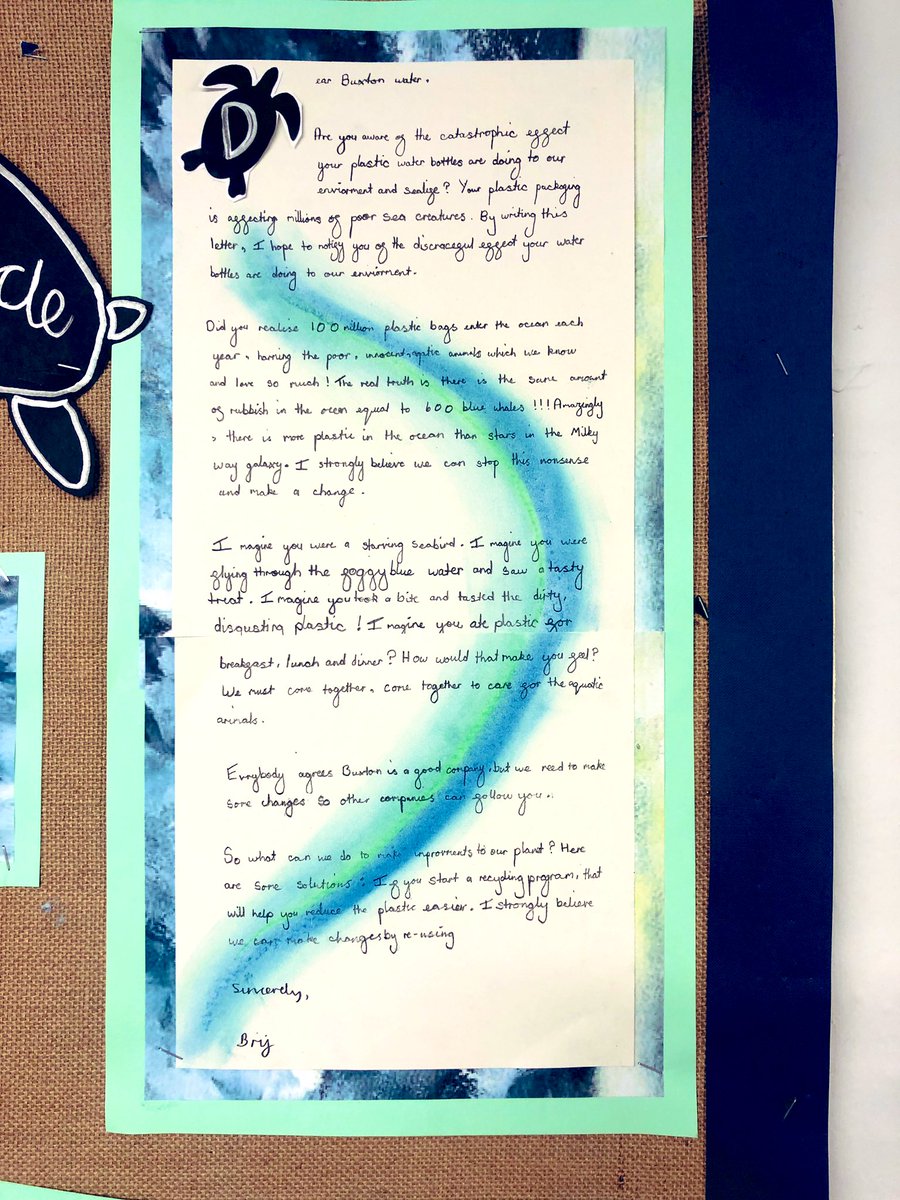 Dear Buxton water,
Are you aware of the catastrophic effect
your plastic water bottles are doing to our
enviorment and sealize? Your plastic packaging
is affecting millions of poor sea creatures. By writing this
letter, I hope to notify you of the discraceful effect your water
bottles are doing to our enviorment.
Did you realise 100 million plastic bags enter the ocean each
year, harming the poor, innocent, aqatic animals which we know
and love so much! The real truth is there is the same amount
of rubbish in the ocean equal to 600 blue whales!!! Amazingly
, there is more plastic in the ocean than stars in the Milky
way galaxy. I strongly believe we can stop this nonsense
and make a change.
Imagine you were a starving seabird. Imagine you were
flying through the foggy blue water and saw a tasty
treat. Imagine you took a bite and tasted the dirty,
disgusting plastic! Imagine you ate plastic for
breakfast, lunch and dinner? How would that make you feel?
We must come together, come together to care for the aquatic
animals.
Evrybody agrees Buxton is a good company, but we need to make
some changes so other companies can follow you.
So what can we do to make improvments to our planet? Here
are some solutions: If you start a recycling program, that
will help you reduce the plastic easier. I strongly believe
we can make changes by re-using
Sincerely,
Brij
cle